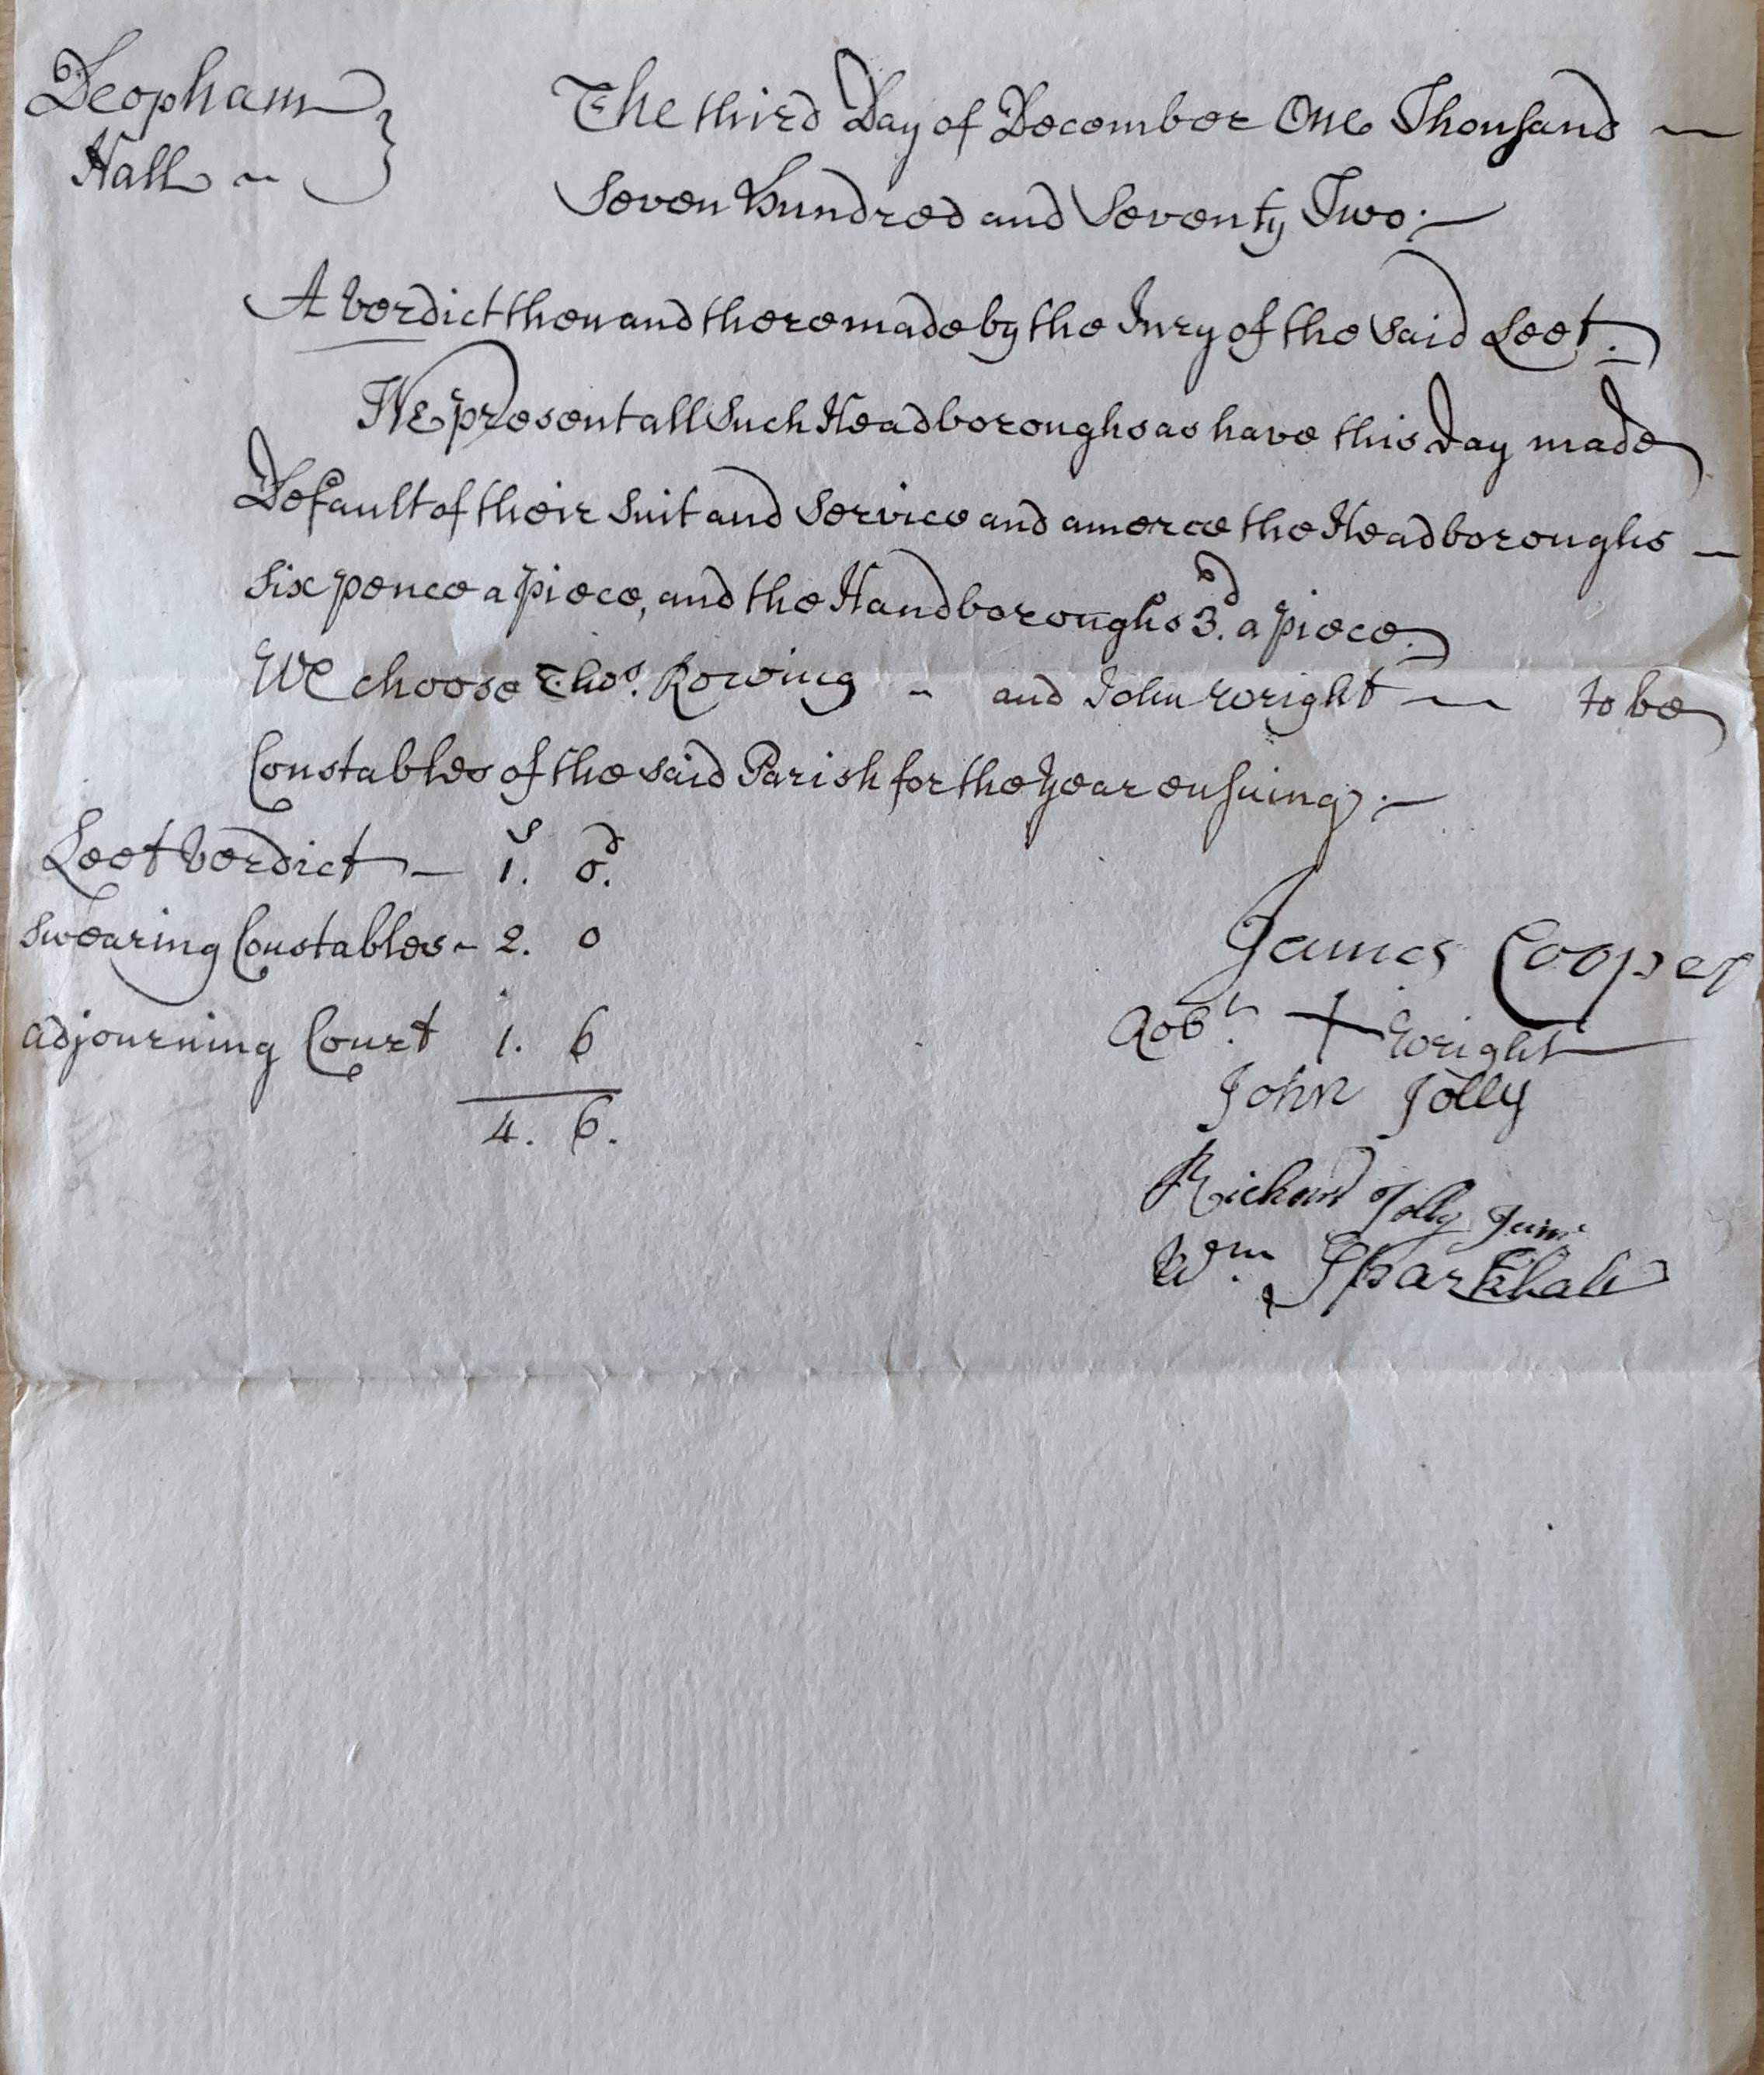 Deopham
Hall
The third Day of December One Thousand
Seven Hundred and Seventy Two.
A Verdict then and there made by the Jury of the said Leet.
We present all Such Headboroughs as have this Day made
Default of their Suit and Service and amerce the Headboroughs
Six pence a piece, and the Handboroughs 3.d a piece.
We choose Thos. Rowing and John Wright to be
Constables of the said Parish for the Year ensuing.
s d
Leet Verdict 1. 0.
Swearing Constables 2. 0
Adjourning Court 1. 6
4. 6.
James Cooper
Robt. + Wright
John Jolly
Richard Jolly Junr
Wm. Sparkhall